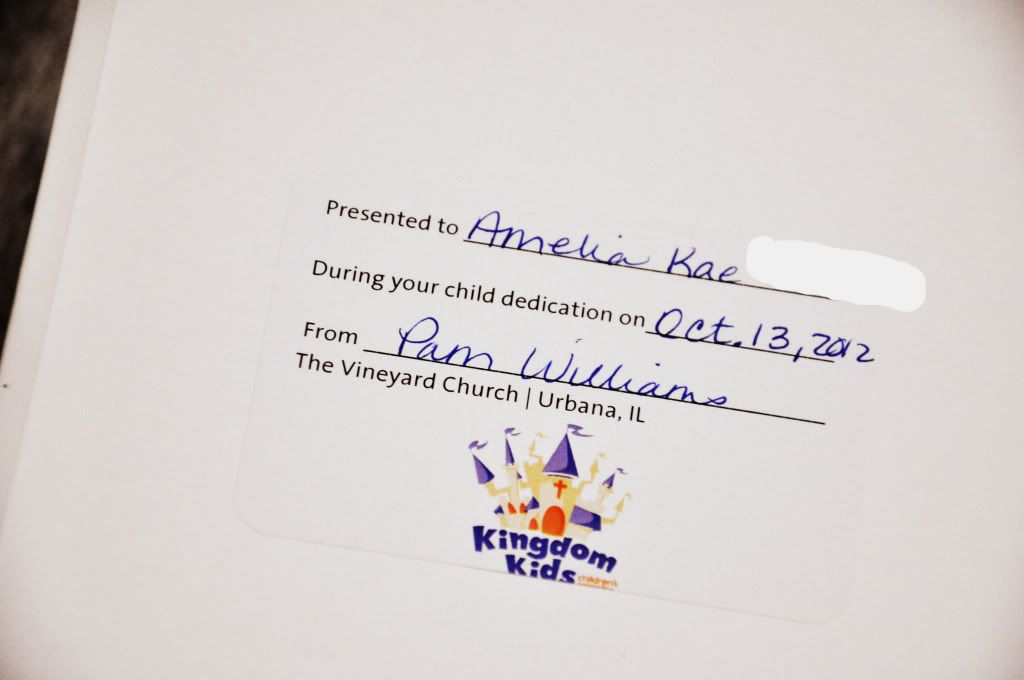 Presented to Amelia Kae
During your child dedication on Oct. 13, 2012
From Pam Williams
The Vineyard Church | Urbana, IL
Kingdom
Kids
children's